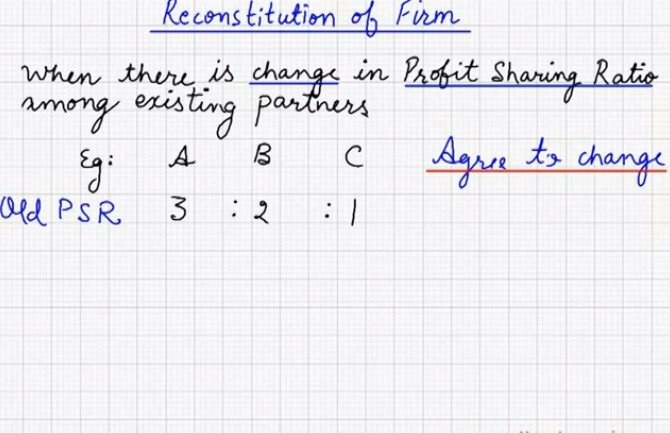 Reconstitution of Firm
when there is change in Profit Sharing Ratio
among existing partners
Eg: A B C Agree to change
Old PSR 3 : 2 : 1